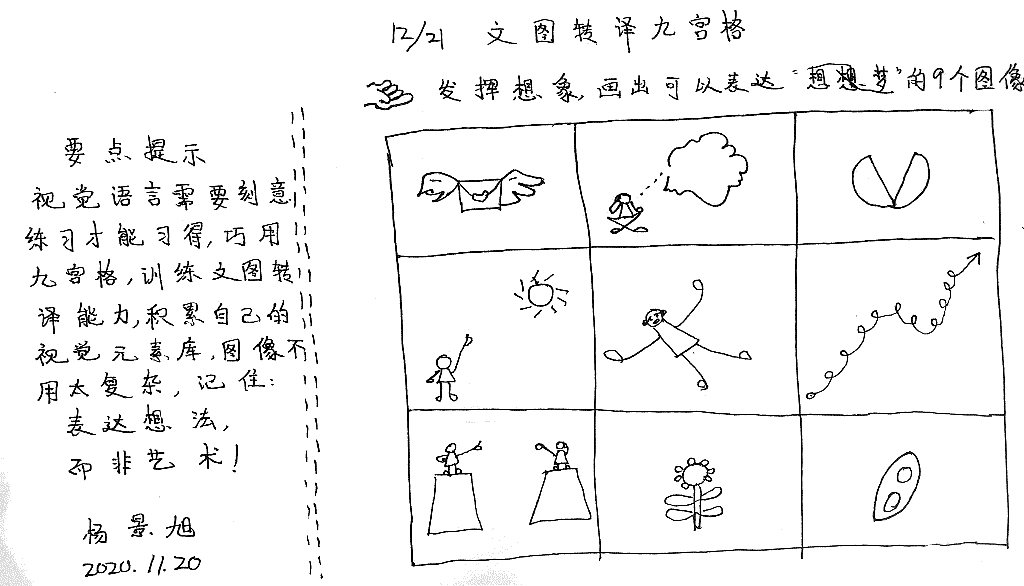 12/21 文图转译九宫格
发挥想象,画出可以表达"想想梦"的9个图像
要点提示
视觉语言需要刻意
练习才能习得,巧用
九宫格,训练文图转
译能力,积累自己的
视觉元素库,图像不
用太复杂,记住:
表达想法,
而非艺术!
杨景旭
2020.11.20